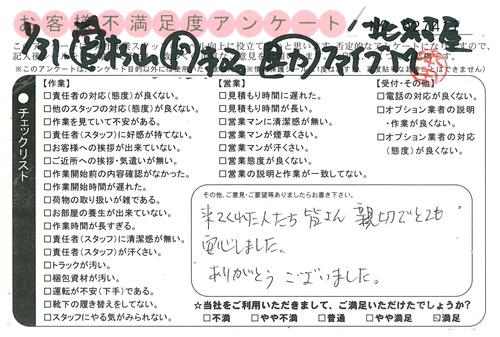 お客様不満足度アンケート
【作業】
□責任者の対応(態度)が良くない。
□他のスタッフの対応(態度)が良くない。
□作業を見ていて不安がある。
□責任者(スタッフ)に好感が持てない。
□お客様への挨拶が出来ていない。
□ご近所への挨拶・気遣いが無い。
□作業開始前の内容確認がなかった。
□作業開始時間が遅れた。
□荷物の取り扱いが雑である。
□お部屋の養生が出来ていない。
□作業時間が長すぎる。
□責任者(スタッフ)に清潔感が無い。
□責任者(スタッフ)が汗くさい。
□トラックが汚い。
□梱包資材が汚い。
□運転が不安(下手)である。
□靴下の履き替えをしてない。
□スタッフにやる気がみられない。
チェックリスト
【営業】
□見積もり時間に遅れた。
□見積もり時間が長い。
□営業マンに清潔感が無い。
□営業マンが煙草くさい。
□営業マンが汗くさい。
□営業態度が良くない。
□営業の説明と作業が一致してない。
【受付・その他】
□電話の対応が良くない。
□オプション業者の説明
・作業が良くない。
□オプション業者の対応
(態度)が良くない。
その他、ご意見・ご要望等ありましたらお書き下さい。
来てくれた人たち皆さん 親切でとても
安心しました。
ありがとう ございました。
☆当社をご利用いただきまして、ご満足いただけたでしょうか?
□不満 □やや不満 □普通 □やや満足 ☑満足